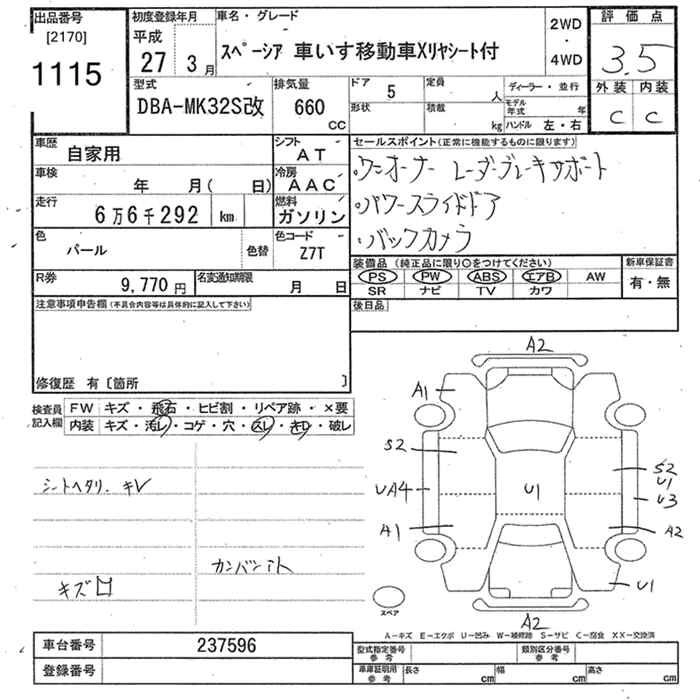 出品番号
[2170]
1115
初度登録年月
平成
27 3 月
車名・グレード
スペーシア 車いす移動車XリヤシートT付
2WD
・
4WD
評価点
3.5
外装 内装
C C
型式
DBA-MK32S改
排気量
660
CC
ドア 5
定員 人
形状
積載 kg
ディーラー・並行
モデル年式 年
ハンドル 左・右
車歴
自家用
シフト
AT
車検
年 月( 日)
冷房
AAC
走行
6万6千292 km
燃料
ガソリン
色
パール
色替
色コード
Z7T
R券
9,770円
名変通知期限
月 日
セールスポイント(正常に機能するものに限ります)
・ワンオーナー レーダーブレーキサポート
・パワースライドドア
・バックカメラ
装備品(純正品に限り○をつけてください)
PS PW ABS エアB AW
SR ナビ TV カワ
新車保証書
有・無
後日品
注意事項申告欄(不具合内容等は具体的に記入して下さい)
修復歴 有〔箇所 〕
検査員記入欄
FW キズ・飛石・ヒビ割・リペア跡・×要
内装 キズ・汚レ・コゲ・穴・スレ・キレ・破レ
シートヘタリ. キレ
カンバンアト
キズ
A2
A1
S2
S2
U1
UA4
U1
U3
A1
A2
U1
A2
スペア
A-キズ E-エクボ U-凹み W-補修跡 S-サビ C-腐食 XX-交換済
車台番号
237596
登録番号
型式指定番号
参考
類別区分番号
参考
車庫証明用
参考
長さ cm
幅 cm
高さ cm